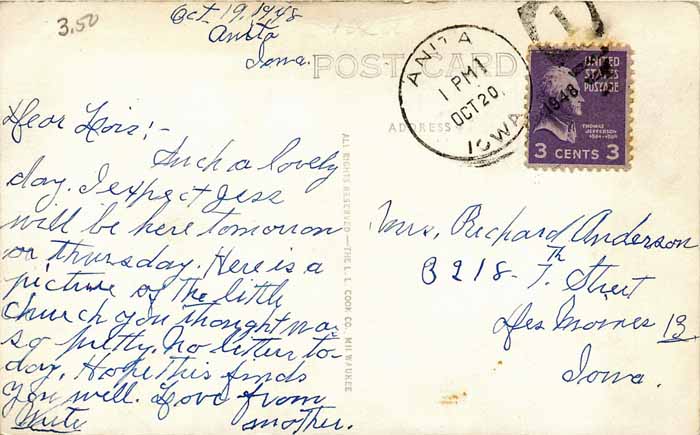 3.50
Oct. 19, 1948
Anita
Iowa.
POST CARD
ADDRESS
ANITA
1 PM
OCT 20
1948
IOWA
1
UNITED
STATES
POSTAGE
THOMAS
JEFFERSON
3 CENTS 3
Dear Lois:-
Such a lovely
day. I expect Jess
will be here tomorrow
or thursday. Here is a
picture of the little
church you thought was
so pretty. No letter to-
day. Hope this finds
you well. Love from
Write mother.
ALL RIGHTS RESERVED—THE L. L. COOK CO. MILWAUKEE
Mrs. Richard Anderson
3218-7th Street
Des Moines 13
Iowa.